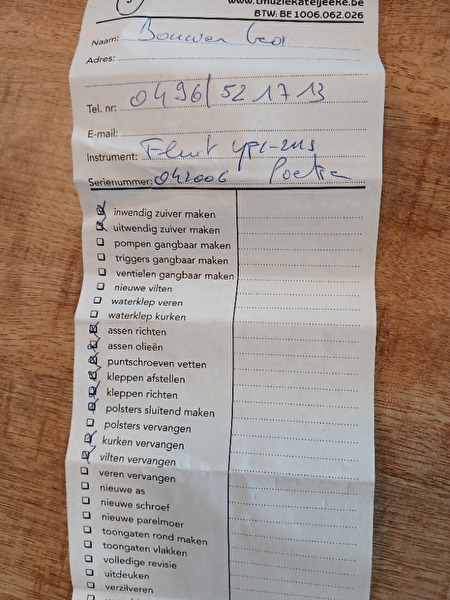 www.tmuziekateljeeke.be
BTW: BE 1006.062.026
Naam: Bouwen
Adres:
Tel. nr: 0496/52 17 13
E-mail:
Instrument: Fluit
Serienummer: 042006
inwendig zuiver maken
uitwendig zuiver maken
pompen gangbaar maken
triggers gangbaar maken
ventielen gangbaar maken
nieuwe vilten
waterklep veren
waterklep kurken
assen richten
assen olieën
puntschroeven vetten
kleppen afstellen
kleppen richten
polsters sluitend maken
polsters vervangen
kurken vervangen
vilten vervangen
veren vervangen
nieuwe as
nieuwe schroef
nieuwe parelmoer
toongaten rond maken
toongaten vlakken
volledige revisie
uitdeuken
verzilveren